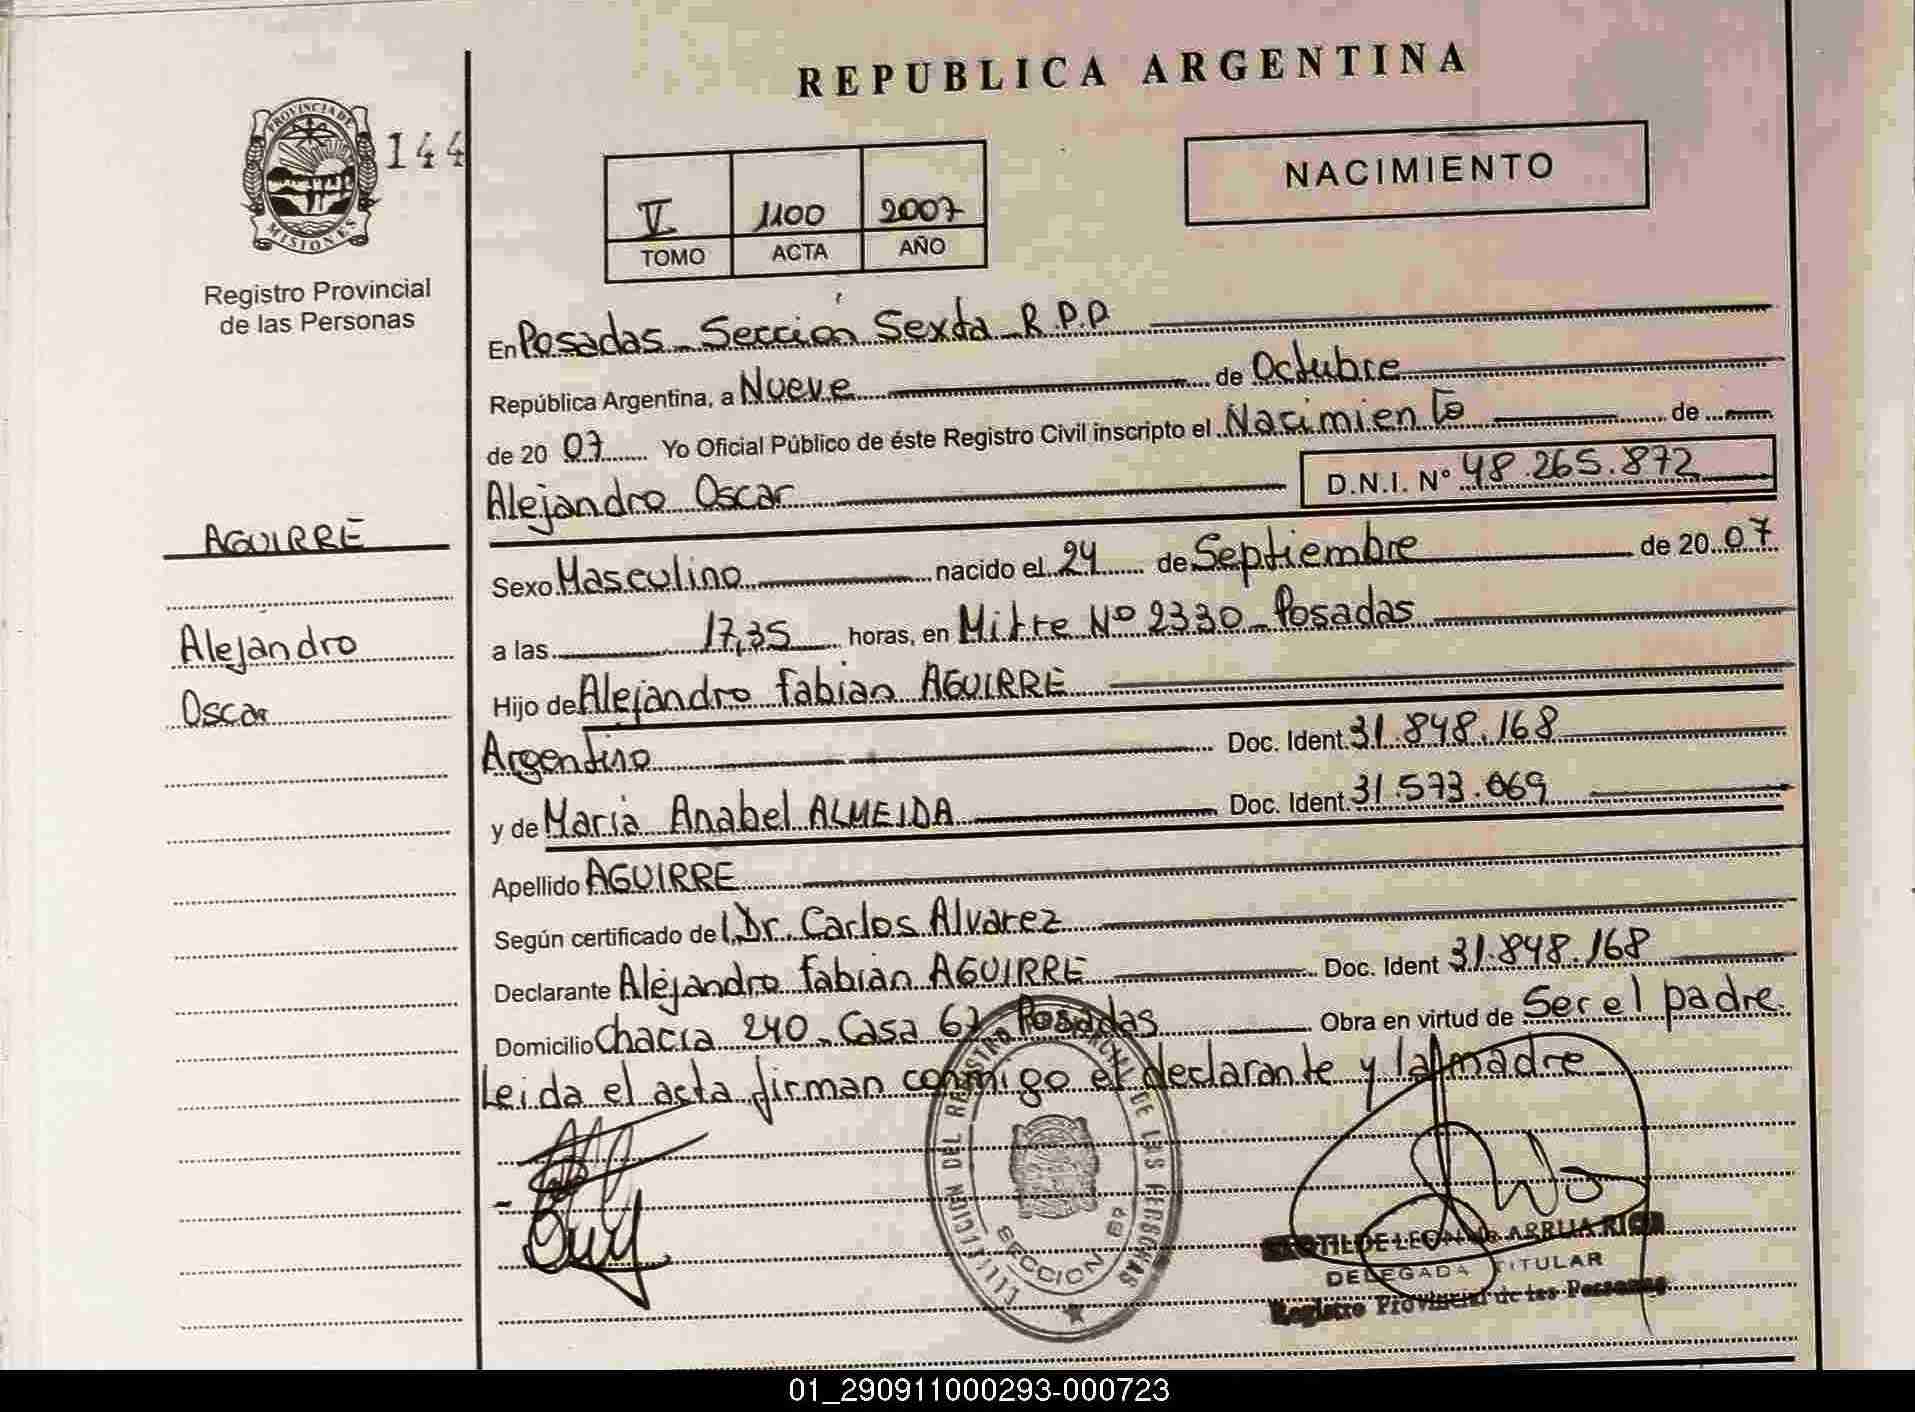 REPUBLICA ARGENTINA
PROVINCIA DE
MISIONES
144
Registro Provincial
de las Personas
V 1100 2007
TOMO ACTA AÑO
NACIMIENTO
En Posadas Sección Sexta R.P.P
República Argentina, a Nueve de Octubre
de 20 07 Yo Oficial Público de éste Registro Civil inscripto el Nacimiento de
Alejandro Oscar D.N.I. N° 48.265.872
AGUIRRE
Sexo Masculino nacido el 24 de Septiembre de 20 07
Alejandro
a las 17,35 horas, en Mitre Nº 2330 Posadas
Oscar
Hijo de Alejandro Fabian AGUIRRE
Argentino Doc. Ident. 31.848.168
y de María Anabel ALMEIDA Doc. Ident. 31.573.069
Apellido AGUIRRE
Según certificado del Dr. Carlos Alvarez
Declarante Alejandro Fabián AGUIRRE Doc. Ident 31.848.168
Domicilio Chacra 240 Casa 62 Posadas Obra en virtud de Ser el padre.
Leida el acta firman conmigo el declarante y la madre
DEL REGISTRO DE LAS PERSONAS
SECCION 6ª
DELEGADA TITULAR
Registro Provincial de las Personas
01_290911000293-000723